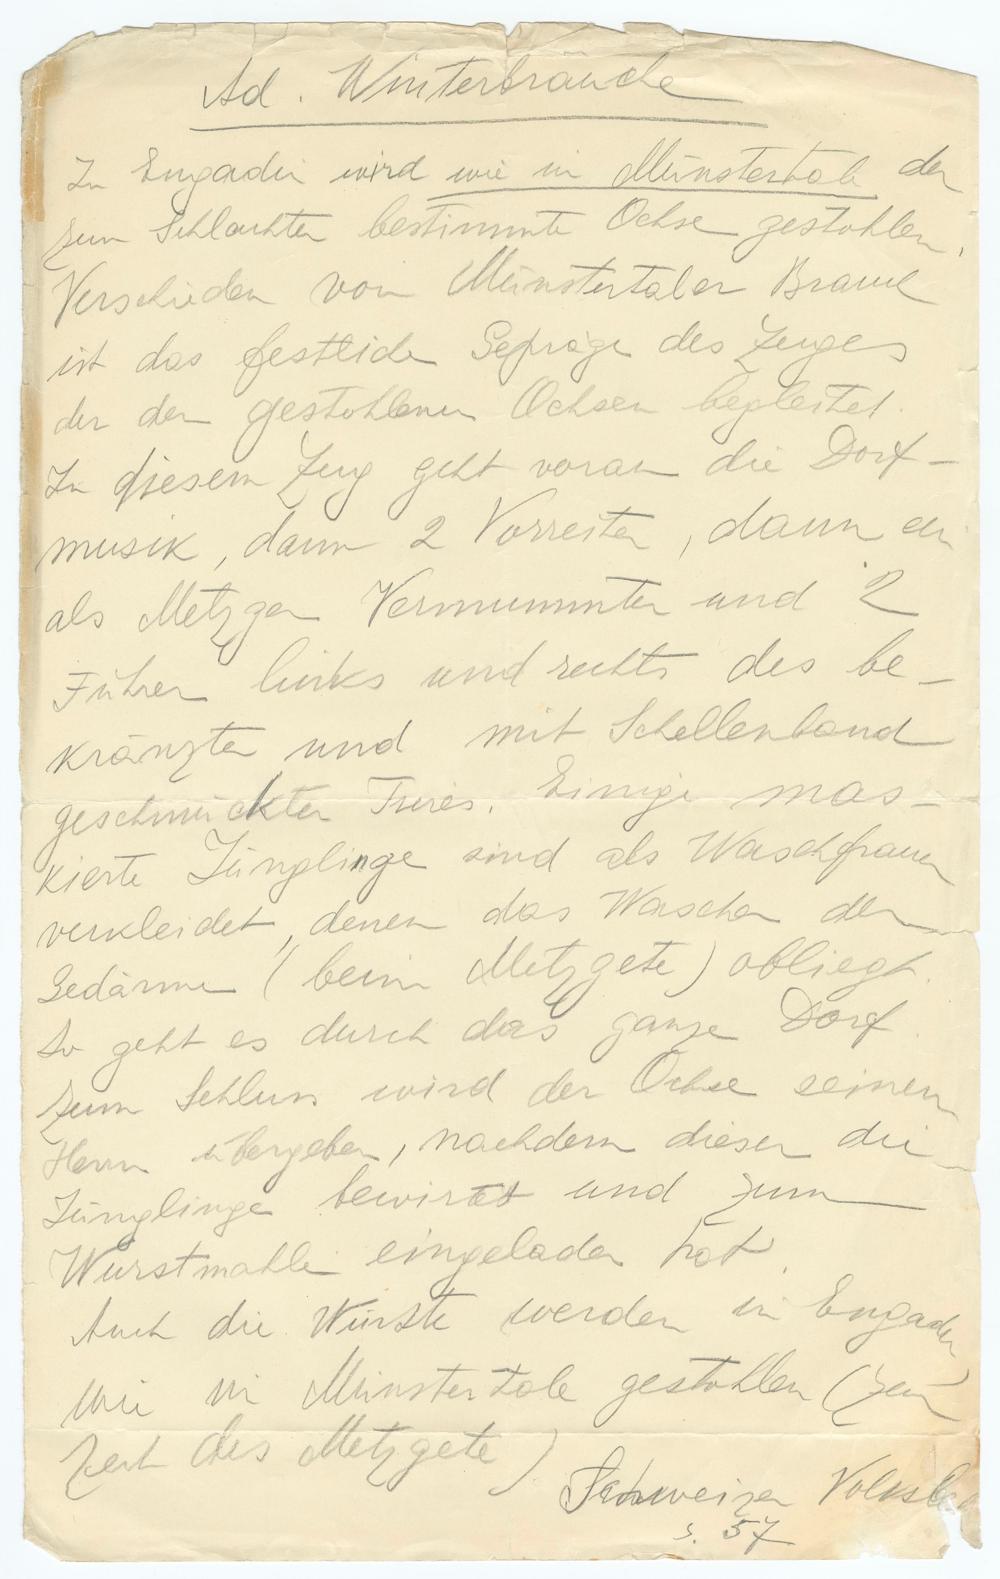 Ad. Winterbräuche
In Engadin wird wie im Münstertale der
zum Schlachten bestimmte Ochse gestohlen.
Verschieden vom Münstertaler Brauch
ist das festliche Gepräge des Zuges
der den gestohlenen Ochsen begleitet.
In diesem Zug geht voran die Dorf-
musik, dann 2 Vorreiter, dann ein
als Metzger Vermummter und 2
Führer links und rechts des be-
kränzten und mit Schellenband
geschmückten Tieres. Einige mas-
kierte Jünglinge sind als Waschfrauen
verkleidet, denen das Waschen der
Gedärme (beim Metzgete) obliegt.
So geht es durch das ganze Dorf.
Zum Schluss wird der Ochse seinem
Herrn übergeben, nachdem dieser die
Jünglinge bewirtet und zum
Wurstmahle eingeladen hat.
Auch die Würste werden in Engadin
wie im Münstertale gestohlen (zur
Zeit des Metzgete)
Schweizer
S. 57